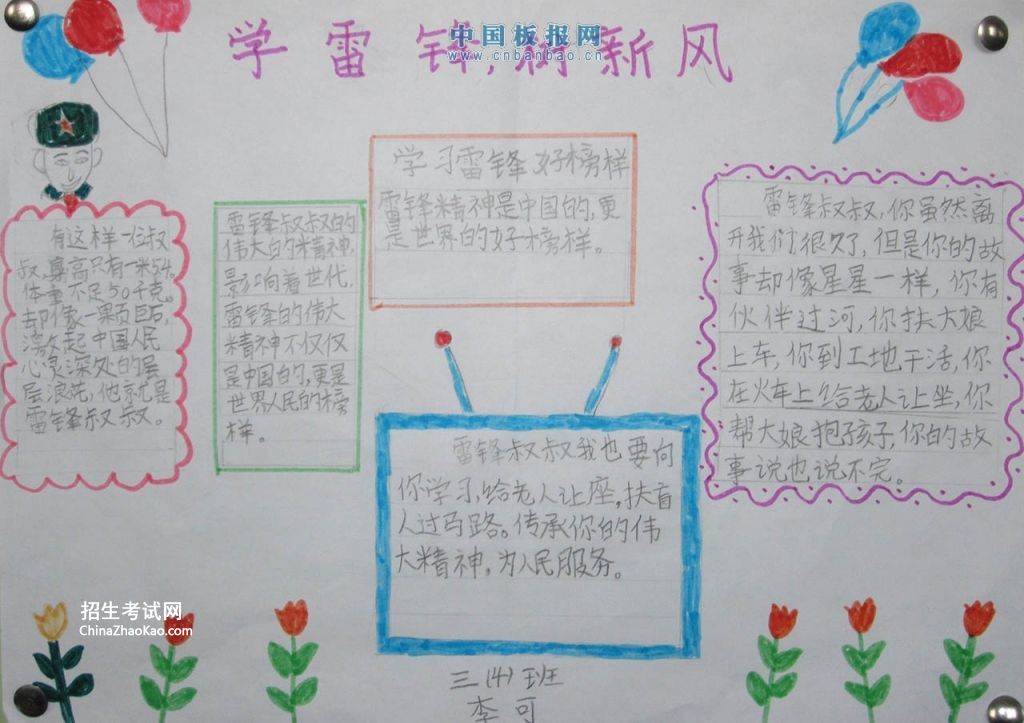 学雷锋,树新风
中国板报网
www.cnbanbao.cn
有这样一位叔
叔,身高只有一米54。
体重不足50千克。
却像一颗负巨石,
激起中国人民
心灵深处的层
层浪花,他就是
雷锋叔叔。
雷锋叔叔的
伟大的精神,
影响着世代,
雷锋的伟大
精神不仅仅
是中国的,更是
世界人民的榜
样。
学习雷锋好榜样
雷锋精神是中国的,更
是世界的好榜样。
雷锋叔叔我也要向
你学习,给老人让座,扶盲
人过马路。传承你的伟
大精神,为人民服务。
雷锋叔叔,你虽然离
开我们很久了,但是你的故
事却像星星一样,你有
伙伴过河,你扶大娘
上车,你到工地干活,你
在火车上给老人让坐,你
帮大娘抱孩子,你的故
事说也说不完。
招生考试网
ChinaZhaoKao.com
三(4)班
李可